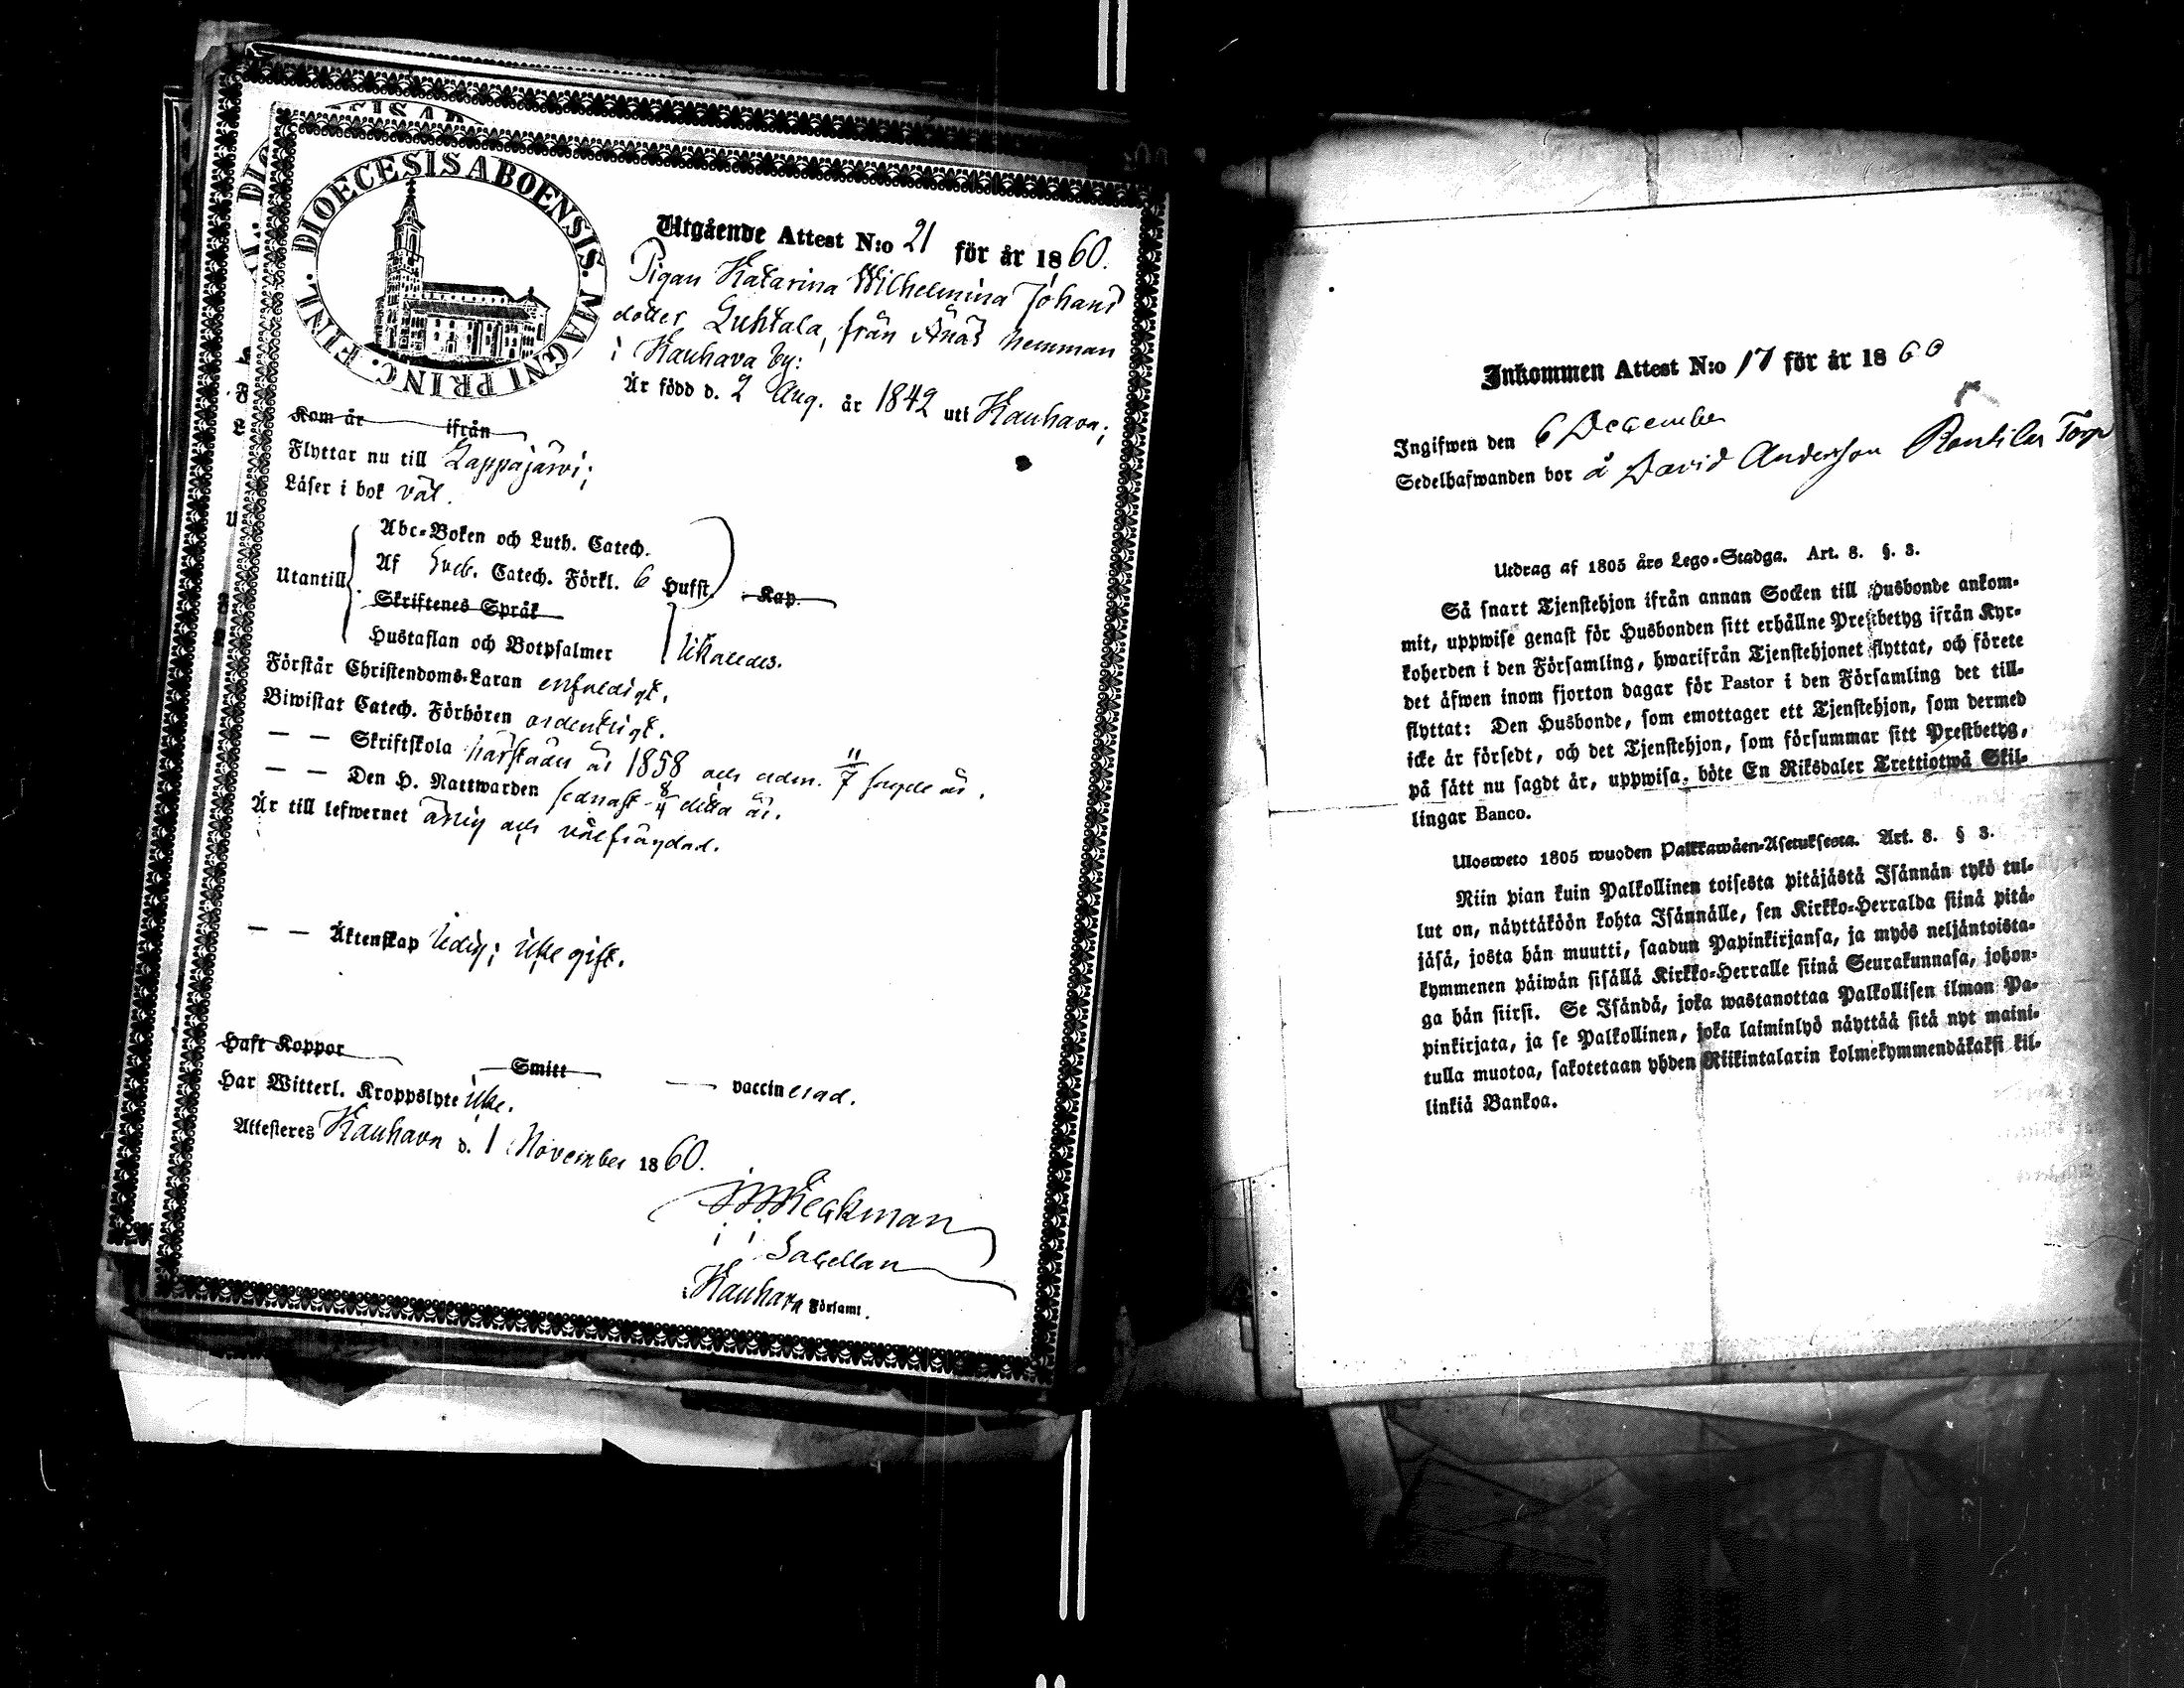 DIOECESIS ABOENSIS. MAGNI PRINC. FINL.
Utgående Attest N:o 21 för år 1860.
Pigan Katarina Wilhelmina Johans
dotter Luhtala, från Änäs hemman
i Kauhava by:
Är född d. 2 Aug. år 1842 uti Kauhava;
Kom år ifrån
Flyttar nu till Lappajärvi;
Läser i bok väl.
Utantill
Abc-Boken och Luth. Catech.
Af Sveb. Catech. Förkl. 6 Hufst. Kap.
Skriftenes Språk
Hustaflan och Botpsalmer likaledes.
Förstår Christendoms-Läran enfaldigt.
Biwistat Catech. Förhören ordentligt.
— — Skriftskola härstädes år 1858 och adm. 11/7 sagde år.
— — Den H. Nattwarden sednast 8/4 detta år.
Är till lefwernet ärlig och välfrägdad.
— — Äktenskap ledig; icke gift.
Haft Koppor Smitt — vaccinerad.
Har Witterl. Kroppslyte icke.
Attesteres Kauhava d. 1 November 1860.
Heckman
Sacellan
Kauhava Församl.
Inkommen Attest N:o 17 för år 1860
Ingifwen den 6 December
Sedelhafwanden bor å David Andersson Torp
Utdrag af 1805 års Lego-Stadga. Art. 8. §. 3.
Så snart Tjenstehjon ifrån annan Socken till Husbonde ankom-
mit, uppwise genast för Husbonden sitt erhållne Prestbetyg ifrån Kyr-
koherden i den Församling, hwarifrån Tjenstehjonet flyttat, och förete
det äfwen inom fjorton dagar för Pastor i den Församling det till-
flyttat: Den Husbonde, som emottager ett Tjenstehjon, som dermed
icke är försedt, och det Tjenstehjon, som försummar sitt Prestbetyg,
på sätt nu sagdt är, uppwisa, böte En Riksdaler Trettiotwå Skil-
lingar Banco.
Ulosweto 1805 wuoden Palkkawäen-Asetuksesta. Art. 8. § 3.
Niin pian kuin Palkollinen toisesta pitäjästä Isännän tykö tul-
lut on, näyttäköön kohta Isännälle, sen Kirkko-Herralda siinä pitä-
jäsä, josta hän muutti, saadun Papinkirjansa, ja myös neljäntoista-
kymmenen päiwän sisällä Kirkko-Herralle siinä Seurakunnasa, johon-
ga hän siirsi. Se Isändä, joka wastanottaa Palkollisen ilman Pa-
pinkirjata, ja se Palkollinen, joka laiminlyö näyttää sitä nyt maini-
tulla muotoa, sakotetaan yhden Riikintalarin kolmekymmendäkaksi kil-
linkiä Bankoa.